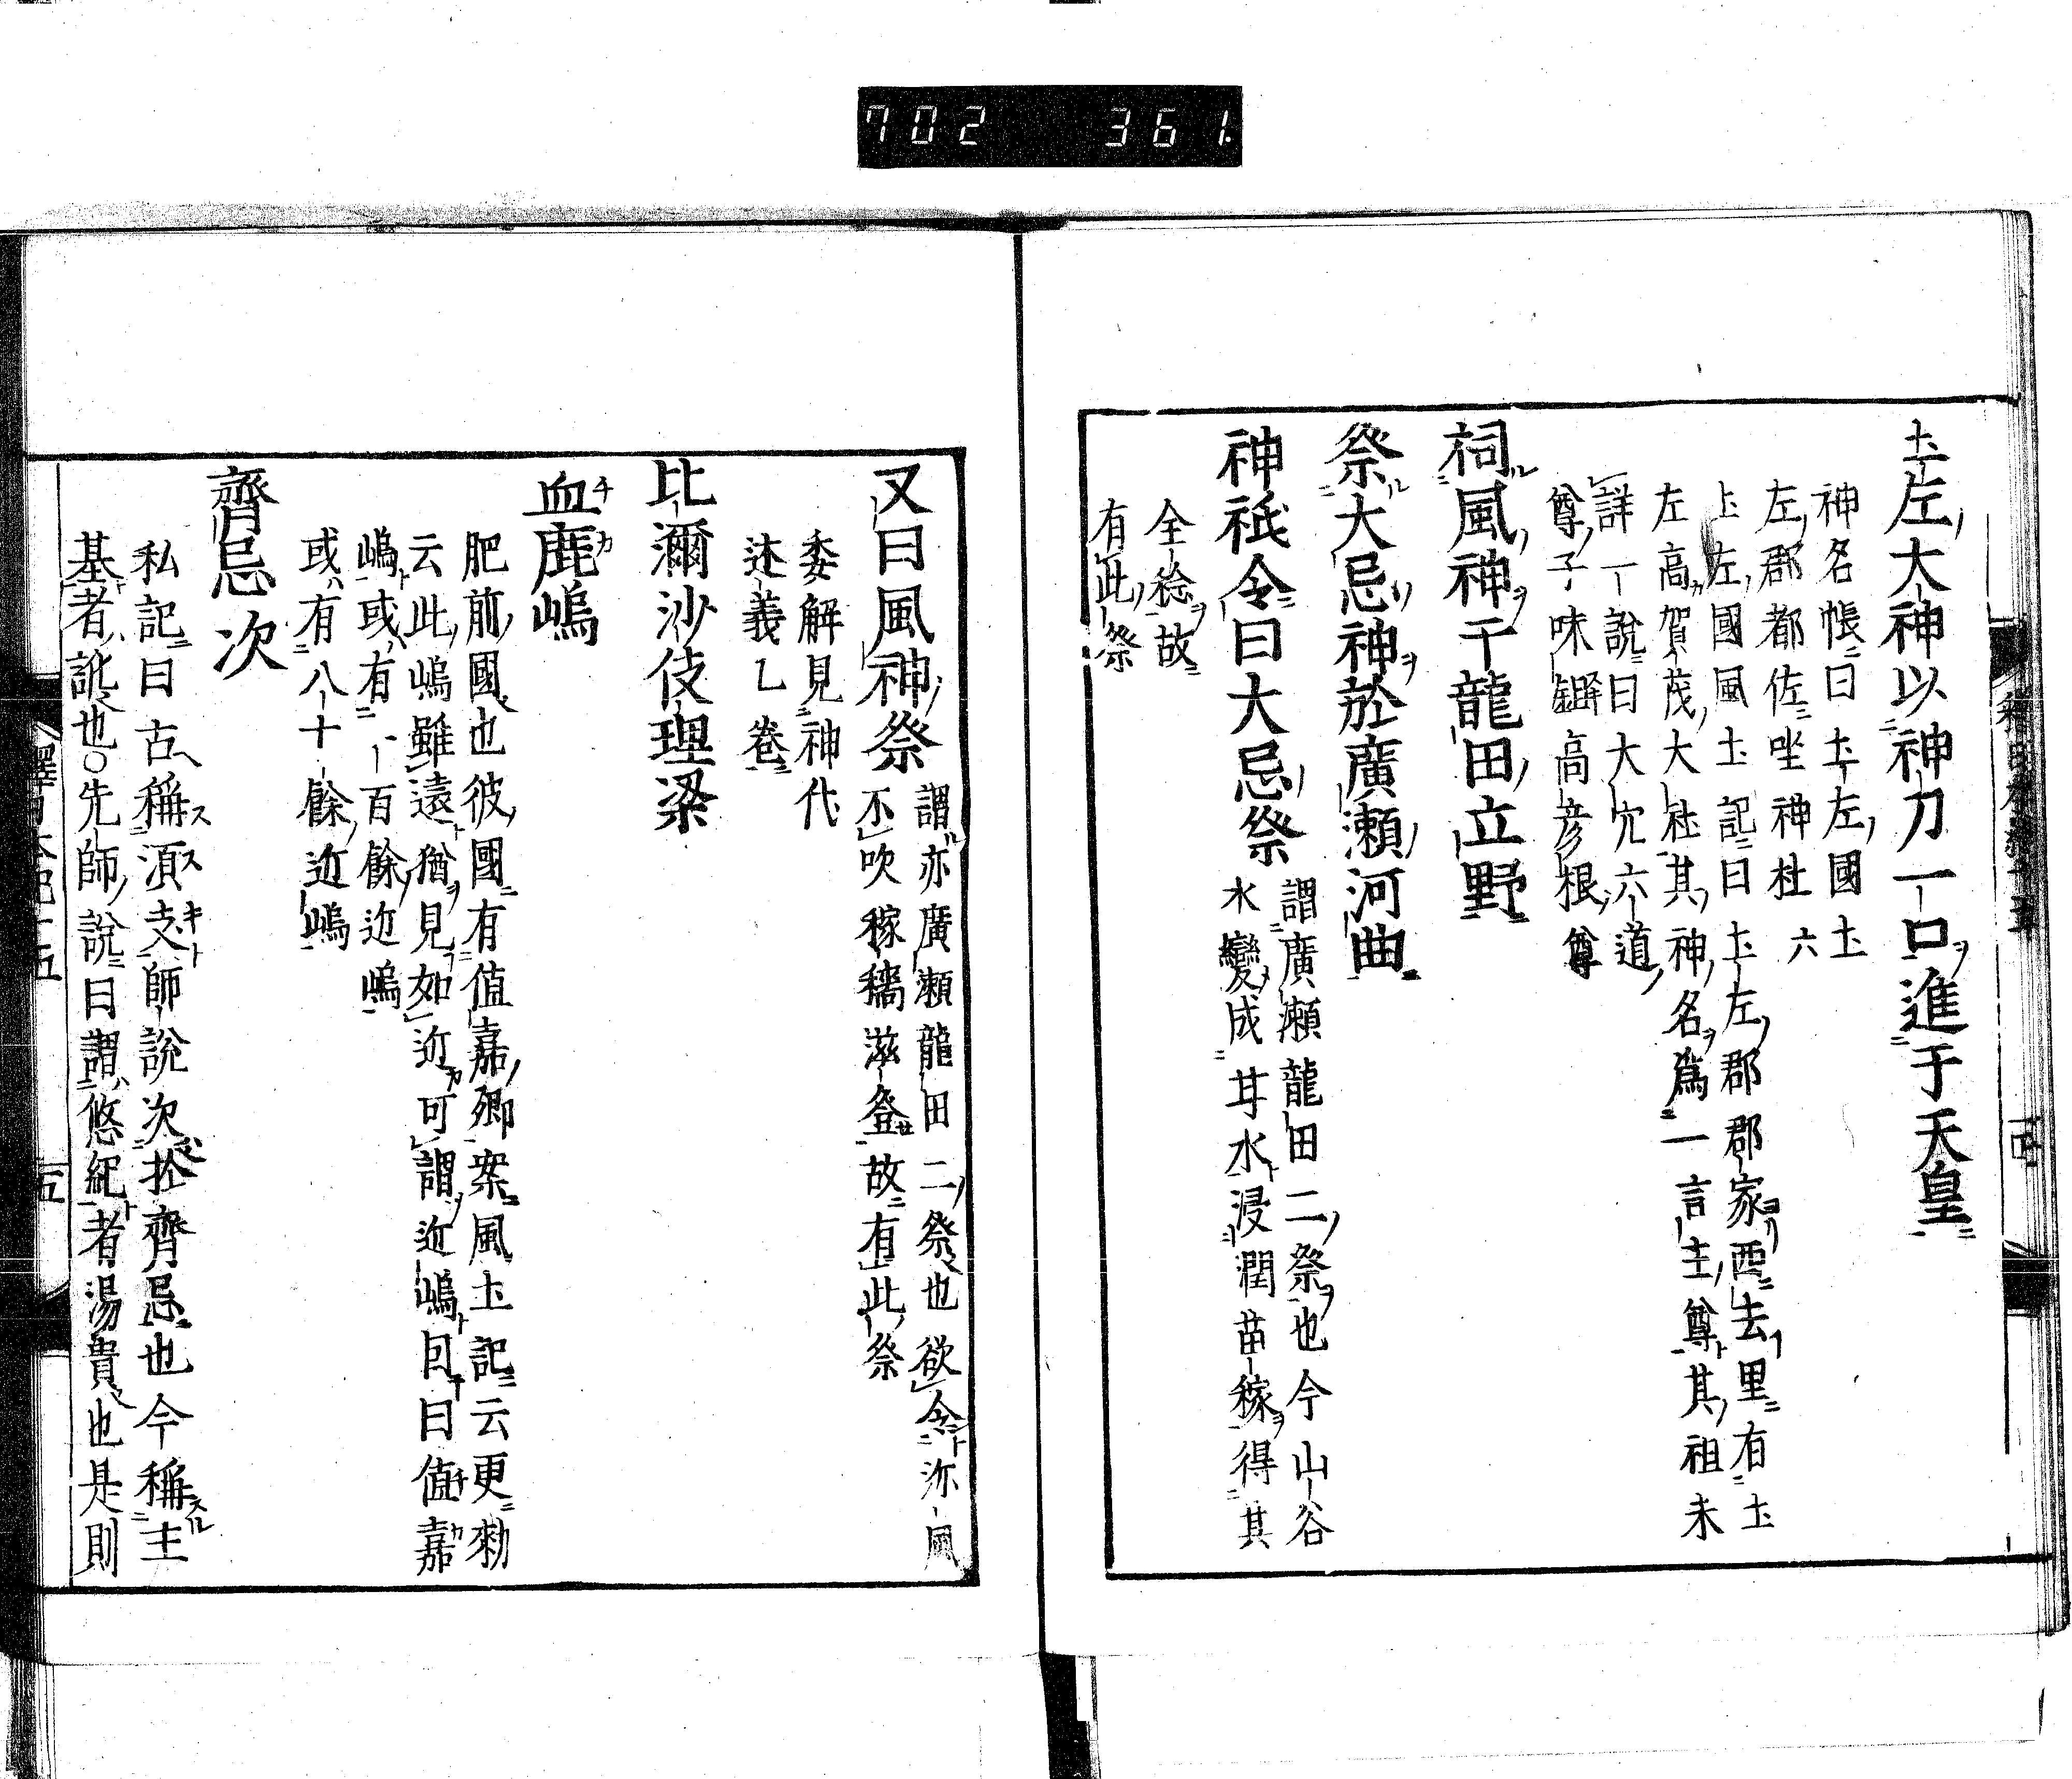 702 361.
土左大神以神刀一口進于天皇
神名帳曰土左國土
左郡都佐坐神社 六
土左國風土記曰土左郡郡家西去里有土
左高賀茂大社其神名爲一言主尊其祖未
詳一說曰大穴六道
尊子味鉏高彦根尊
祠風神于龍田立野
祭大忌神於廣瀬河曲
神祇令曰大忌祭
謂廣瀬龍田二祭也令山谷
水變成甘水浸潤苗稼得其
全稔故
有此祭
又曰風神祭
謂亦廣瀬龍田二祭也欲令沴風
不吹稼穡滋登故有此祭
委解見神代
述義乙巻
比瀰沙伎理梁
血鹿嶋
チカ
肥前國也彼國有值嘉郷案風土記云更勅
云此嶋雖遠猶見如近可謂近嶋因曰值嘉
嶋或有一百餘近嶋
或有八十餘近嶋
齊忌次
私記曰古稱須支師說次於齊忌也今稱主
基者訛也○先師說曰謂悠紀者湯貴也是則
五